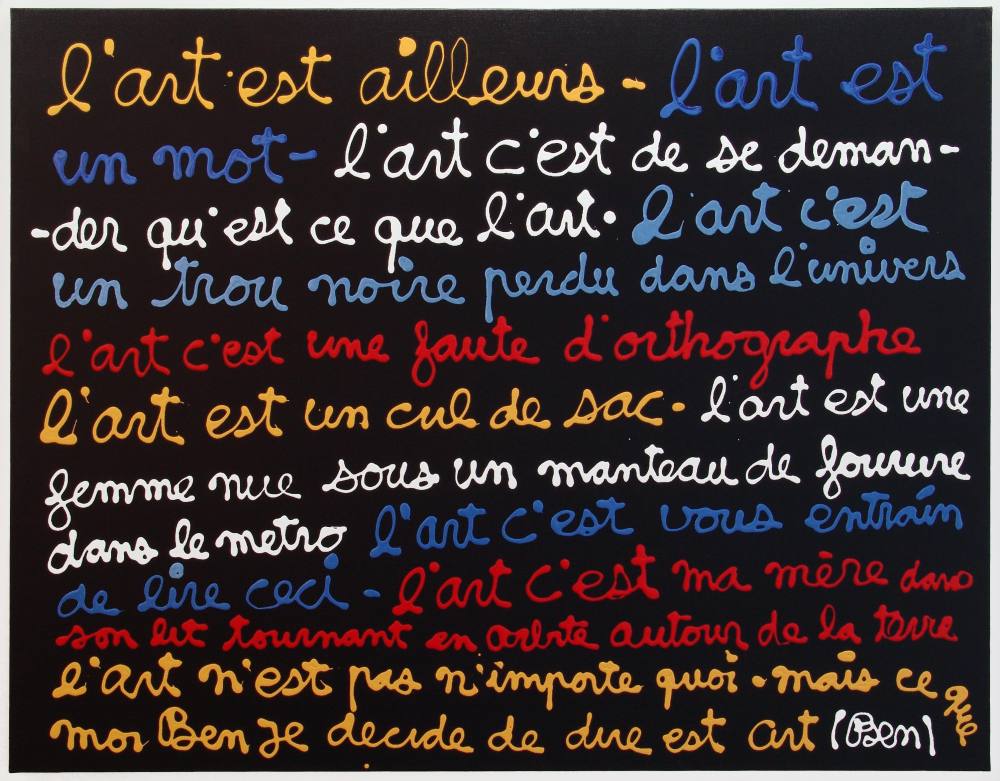 l'art est ailleurs - l'art est
un mot - l'art c'est de se deman-
-der qu'est ce que l'art. l'art c'est
un trou noire perdu dans l'univers
l'art c'est une faute d'orthographe
l'art est un cul de sac. l'art est une
femme nue sous un manteau de fourure
dans le metro l'art c'est vous entrain
de lire ceci - l'art c'est ma mère dans
son lit tournant en orbite autour de la terre
l'art n'est pas n'importe quoi. mais ce que
moi Ben Je decide de dire est art (Ben)